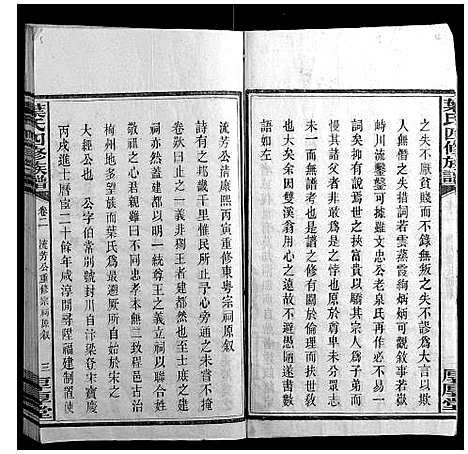 葉氏四修族譜
之失不厭貧賤而不錄無叛之失不謬爲大言以欺
人無僭之失措詞若雲蒸霞絢炳炳可觀敘事若
峙川流鑿鑿可據雖文忠公老泉氏再作必不易一
辭彼有視爲具文者非挾富貴以驕其宗人爲子弟而
賢智其父者非敢爲是之悖也原於尊卑不辨視同
未一而無書者也是譜之修有關於倫理而
也大矣余因雙溪翁用心之遠故不避愚
語如左
流芳公清康熙丙寅重修東粵宗祠原敘
詩有之邦畿千里惟民所止尋心旁紹千耆不掩
卷歎曰止之一義非獨王者建都然也至士庶之建
祠亦然蓋建都以明一統尊王之義立祠以聯合姓
敬祖之心君親雖曰不同忠孝未無二致程邑古治
梅州地多望族而葉氏爲最避厥所自始於宋之
大經公也 公字伯常別號封川自汴梁登宋寶慶
丙戌進士曆宦二十餘年咸淳開尋陞福建制置使
葉氏四修族譜
卷二 流芳公重修宗祠原敘
三
厚厚堂